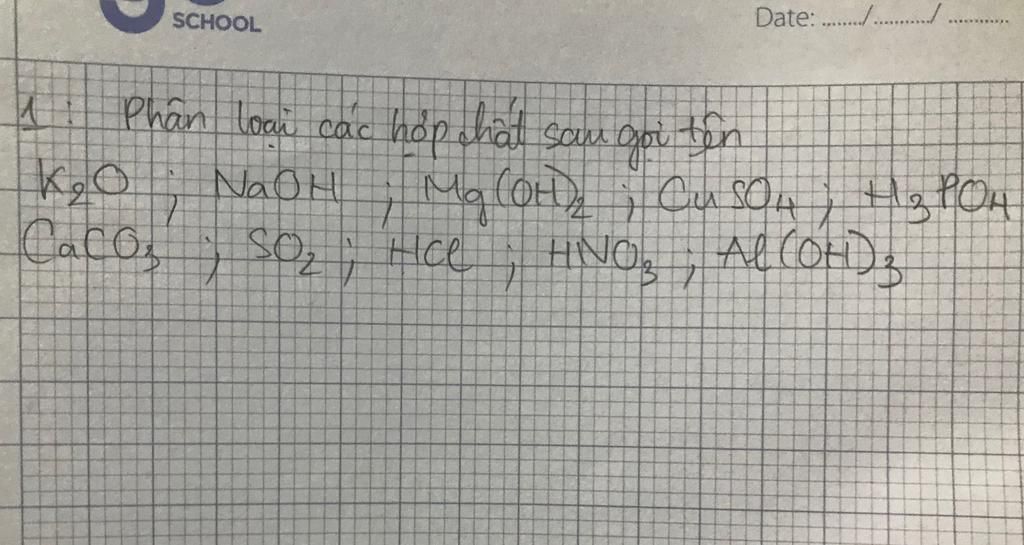 SCHOOL
Date: ......../.........../ ............
1: Phân loại các hợp chất sau gọi tên
K₂O ; NaOH ; Mg(OH)₂ ; CuSO₄ ; H₃PO₄
CaCO₃ ; SO₂ ; HCl ; HNO₃ ; Al(OH)₃